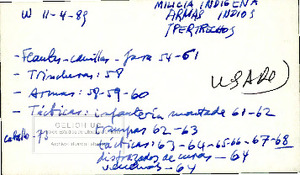 W 11-4-89
MILICIA INDIGENA
ARMAS INDIOS
(PERTRECHOS
- Flautas - camillas - fara 54-61
- Trinduras: 58
- Armas: 58-59-60
USADO
- Tácticas: infantería montada 61-62
caballo - 73
trampas 62-63
tácticas: 63-64-65-66-67-68
disfrazados de curas - 64
venenos - 64